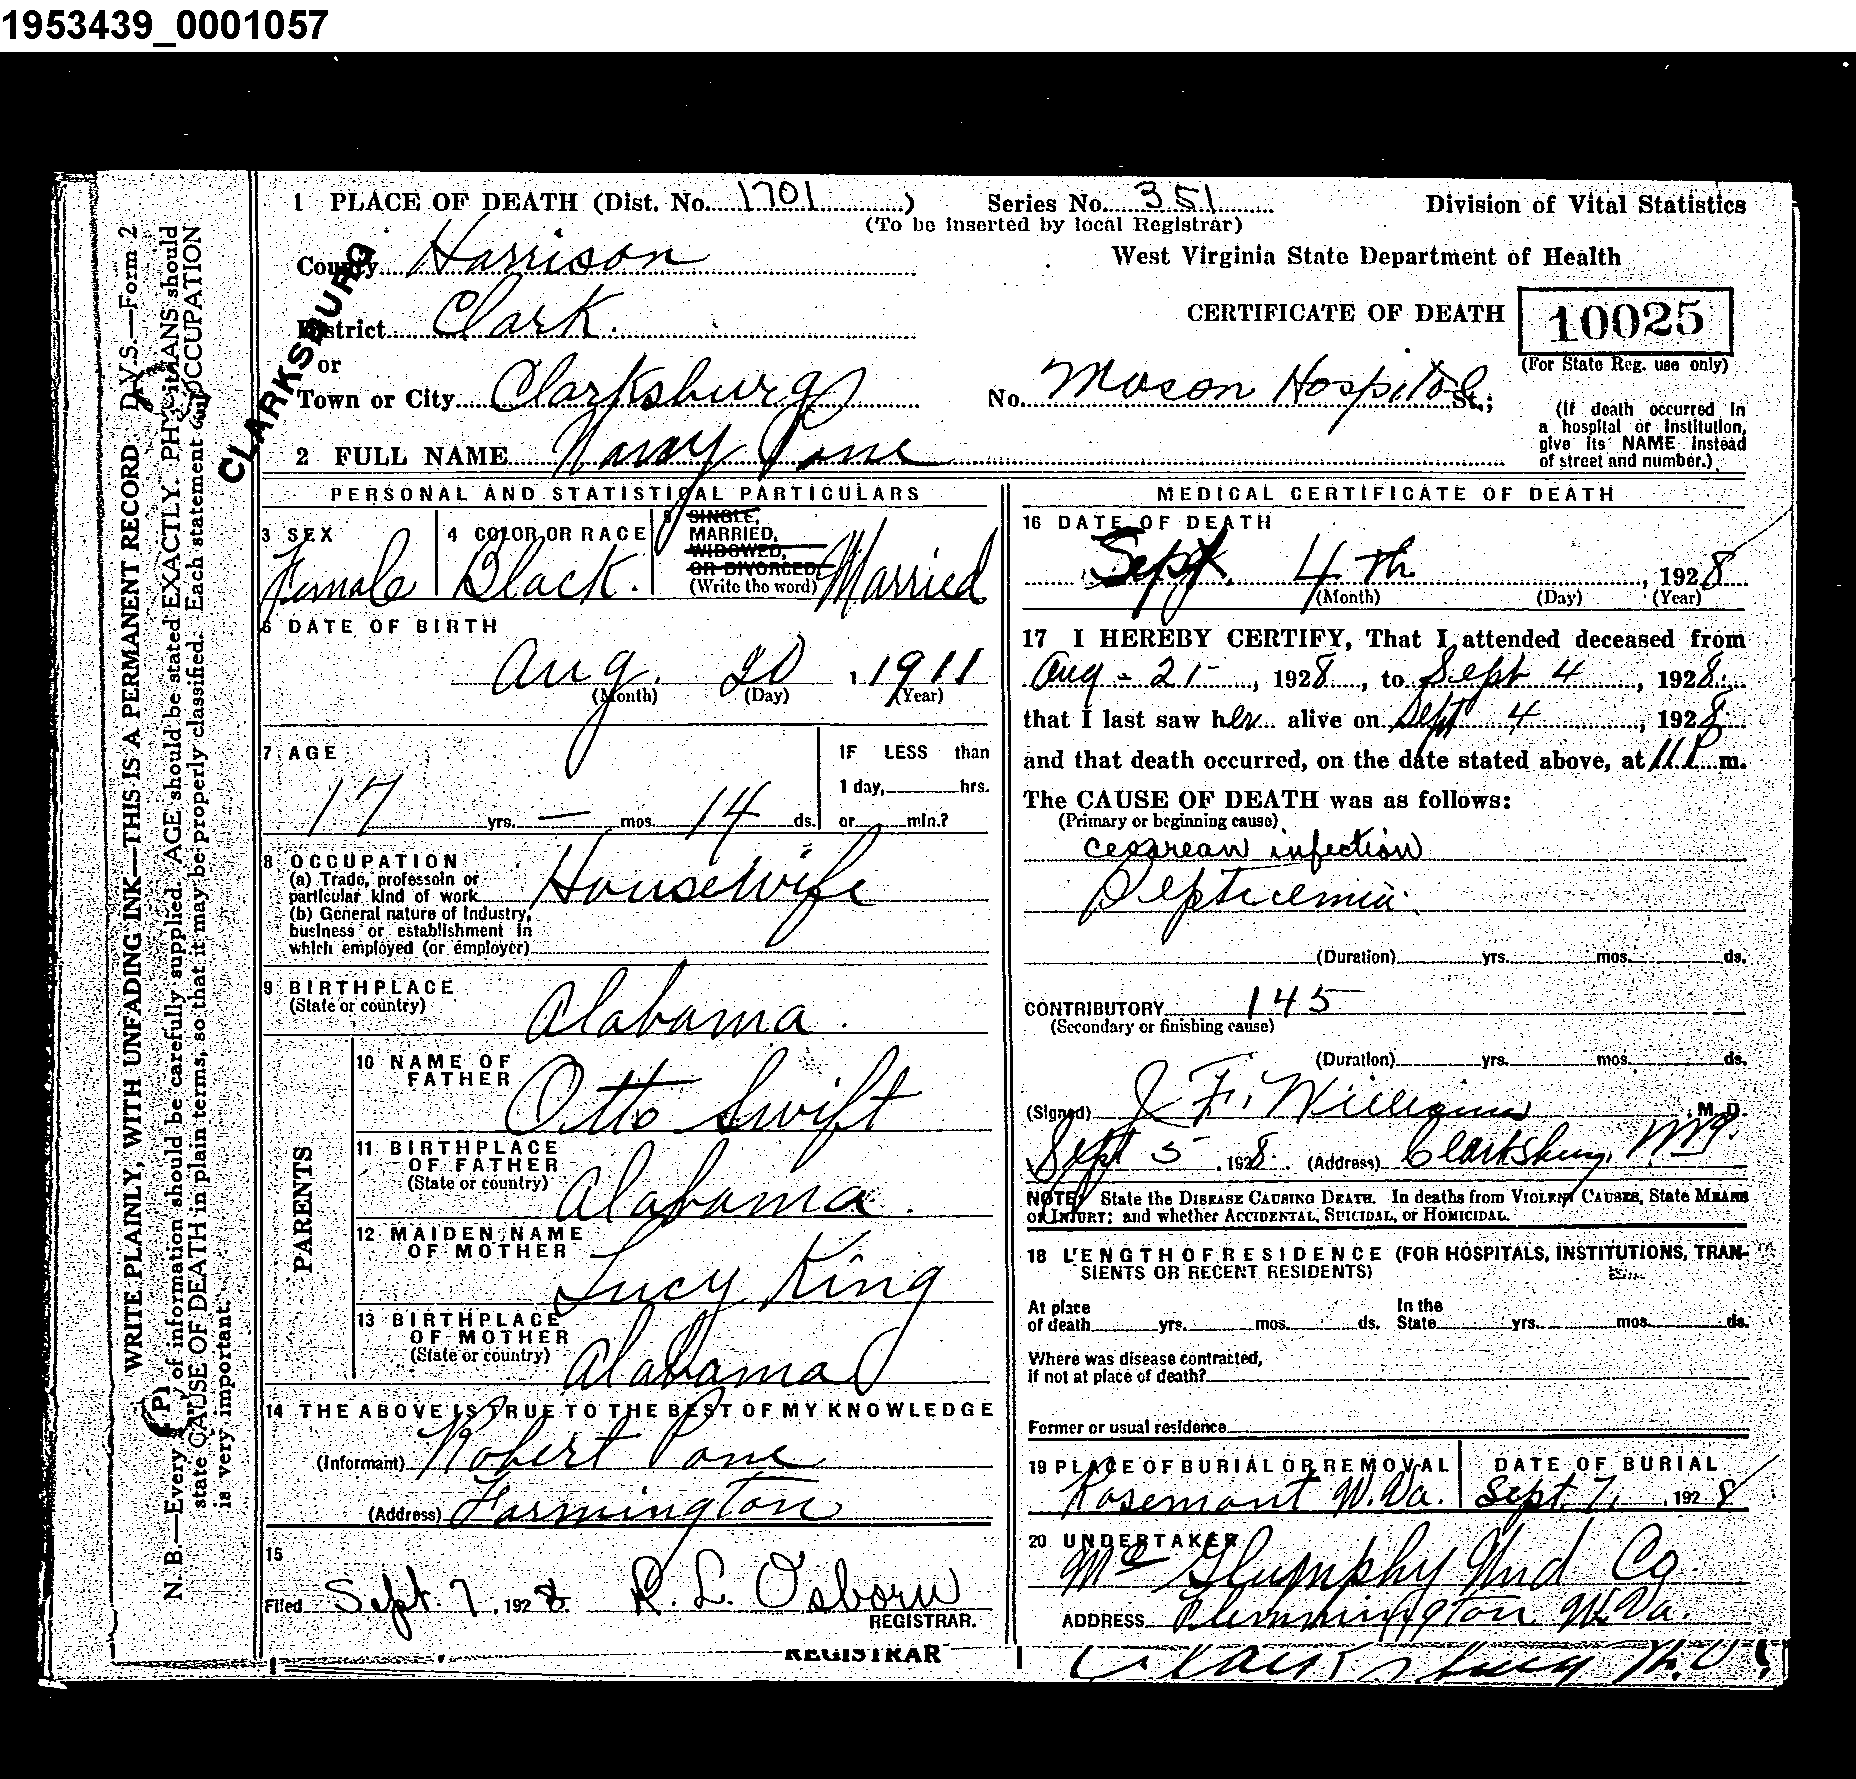 1953439_0001057
1 PLACE OF DEATH (Dist. No. 1701) Series No. 351 Division of Vital Statistics
(To be inserted by local Registrar)
County Harrison West Virginia State Department of Health
District Clark CERTIFICATE OF DEATH 10025
or (For State Reg. use only)
Town or City Clarksburg No. Mason Hospital St.;
(If death occurred in
a hospital or institution,
give its NAME instead
of street and number.)
CLARKSBURG
2 FULL NAME Nancy
PERSONAL AND STATISTICAL PARTICULARS
3 SEX
Female
4 COLOR OR RACE
Black.
5 SINGLE,
MARRIED,
WIDOWED,
OR DIVORCED
(Write the word) Married
6 DATE OF BIRTH
Aug. 20, 1911
(Month) (Day) (Year)
7 AGE
17 yrs. — mos. 14 ds.
IF LESS than
1 day, hrs.
or min.?
8 OCCUPATION
(a) Trade, professoin or
particular kind of work Housewife
(b) General nature of Industry,
business or establishment in
which employed (or employer)
9 BIRTHPLACE
(State or country) Alabama.
PARENTS
10 NAME OF
FATHER Otto Swift
11 BIRTHPLACE
OF FATHER
(State or country) Alabama.
12 MAIDEN NAME
OF MOTHER Lucy King
13 BIRTHPLACE
OF MOTHER
(State or country) Alabama
14 THE ABOVE IS TRUE TO THE BEST OF MY KNOWLEDGE
(Informant) Robert
(Address) Farmington
15
Filed Sept. 7, 1928. R. L. Osborn
REGISTRAR.
REGISTRAR
MEDICAL CERTIFICATE OF DEATH
16 DATE OF DEATH
Sept. 4th, 1928
(Month) (Day) (Year)
17 I HEREBY CERTIFY, That I attended deceased from
Aug - 21, 1928, to Sept 4, 1928.
that I last saw her alive on Sept 4, 1928
and that death occurred, on the date stated above, at 11 P. m.
The CAUSE OF DEATH was as follows:
(Primary or beginning cause)
cesarean infection
Septicemia.
(Duration) yrs. mos. ds.
CONTRIBUTORY 145
(Secondary or finishing cause)
(Duration) yrs. mos. ds.
(Signed) J F. Williams, M. D.
Sept 5, 1928. (Address) Clarksburg
NOTE: State the DISEASE CAUSING DEATH. In deaths from VIOLENT CAUSES, State MEANS
OF INJURY; and whether ACCIDENTAL, SUICIDAL, or HOMICIDAL.
18 LENGTH OF RESIDENCE (FOR HOSPITALS, INSTITUTIONS, TRAN-
SIENTS OR RECENT RESIDENTS)
At place In the
of death yrs. mos. ds. State yrs. mos. ds.
Where was disease contracted,
if not at place of death?
Former or usual residence
19 PLACE OF BURIAL OR REMOVAL
Rosemont W. Va.
DATE OF BURIAL
Sept. 7, 1928
20 UNDERTAKER
Mc Glumphy Und Co.
ADDRESS Flemmington W. Va.
D.V.S.—Form 2
WRITE PLAINLY, WITH UNFADING INK—THIS IS A PERMANENT RECORD
N. B.—Every of information should be carefully supplied. AGE should be stated EXACTLY. PHYSICIANS should
state CAUSE OF DEATH in plain terms, so that it may be properly classified. Each statement OCCUPATION
is very important.